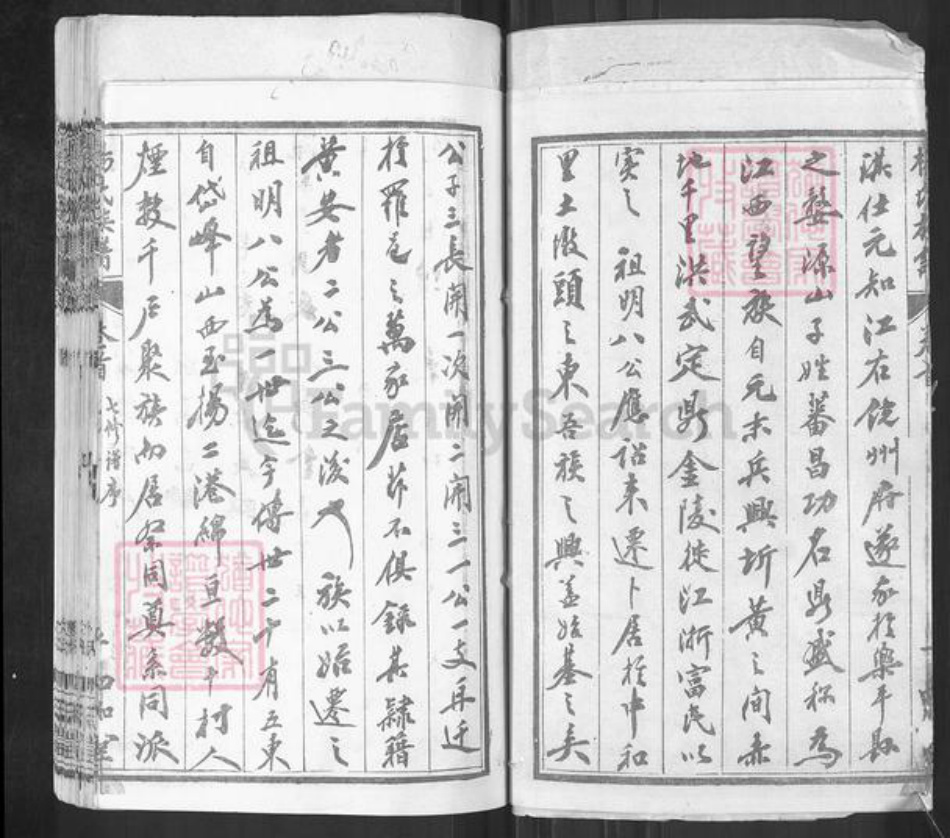 淇仕元知江右饶州府遂家於樂平縣
之婺源山子姓蕃昌功名鼎盛称為
江西望族自元末兵興蘄黄之间赤
地千里洪武定鼎金陵徙江浙富民以
实之　祖明八公應诏来遷卜居於中和
里土墩頭之東吾族之興盖始基之矣
公子三長開一次開二開三一公一支再迁
於羅邑之萬家居第不俱録其隷籍
黄安者二公三公之後也　族以始遷之
祖明八公為一世迄今傳世二十有五東
自岱峰山西至揚二港綿亘數十村人
煙数千户聚族而居祭同奠系同派
卷首　七修谱序
FamilySearch